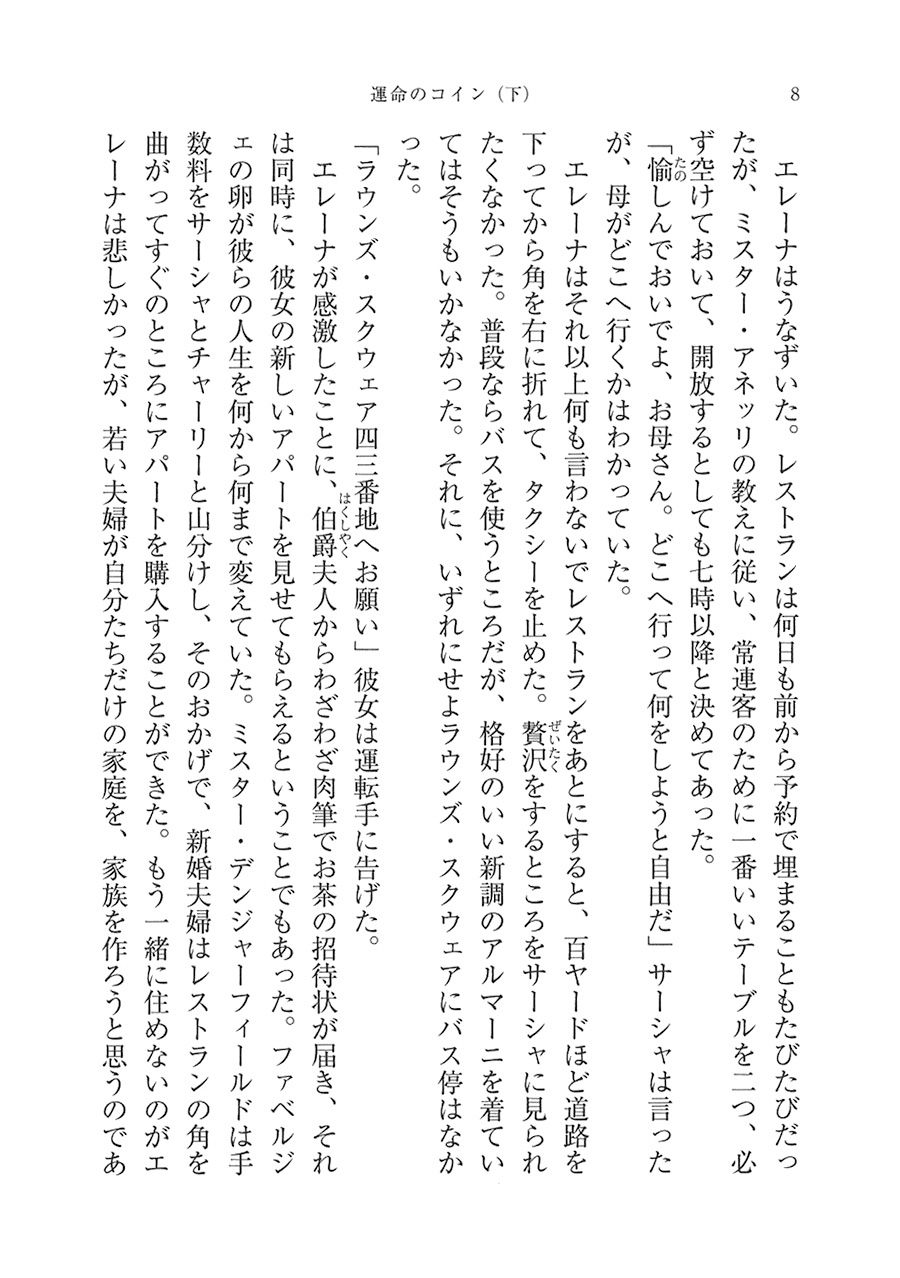 運命のコイン（下）
8
　エレーナはうなずいた。レストランは何日も前から予約で埋まることもたびたびだっ
たが、ミスター・アネッリの教えに従い、常連客のために一番いいテーブルを二つ、必
ず空けておいて、開放するとしても七時以降と決めてあった。
「愉しんでおいでよ、お母さん。どこへ行って何をしようと自由だ」サーシャは言った
たの
が、母がどこへ行くかはわかっていた。
　エレーナはそれ以上何も言わないでレストランをあとにすると、百ヤードほど道路を
下ってから角を右に折れて、タクシーを止めた。贅沢をするところをサーシャに見られ
ぜいたく
たくなかった。普段ならバスを使うところだが、格好のいい新調のアルマーニを着てい
てはそうもいかなかった。それに、いずれにせよラウンズ・スクウェアにバス停はなか
った。
「ラウンズ・スクウェア四三番地へお願い」彼女は運転手に告げた。
　エレーナが感激したことに、伯爵夫人からわざわざ肉筆でお茶の招待状が届き、それ
はくしやく
は同時に、彼女の新しいアパートを見せてもらえるということでもあった。ファベルジ
ェの卵が彼らの人生を何から何まで変えていた。ミスター・デンジャーフィールドは手
数料をサーシャとチャーリーと山分けし、そのおかげで、新婚夫婦はレストランの角を
曲がってすぐのところにアパートを購入することができた。もう一緒に住めないのがエ
レーナは悲しかったが、若い夫婦が自分たちだけの家庭を、家族を作ろうと思うのであ